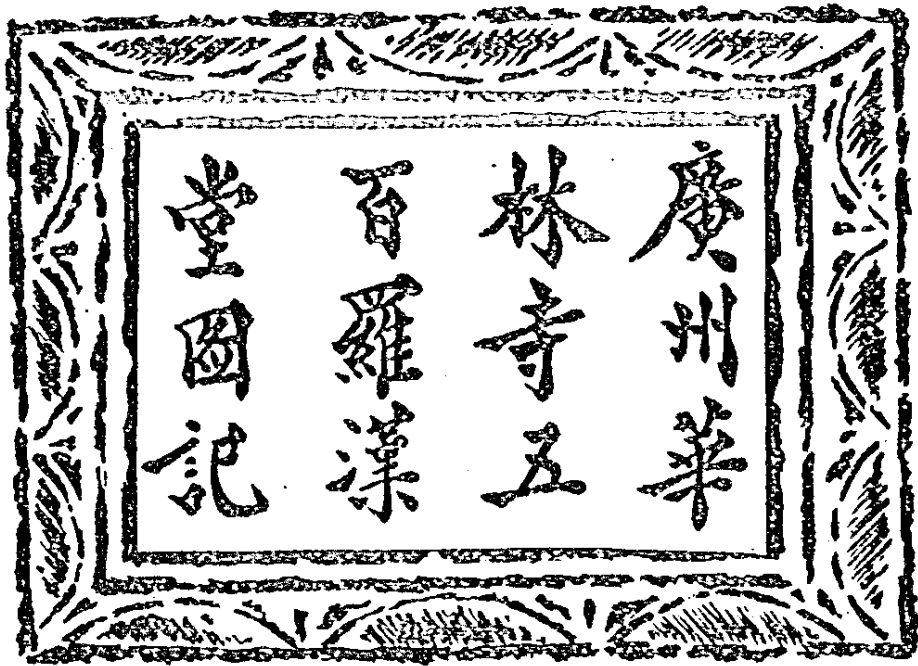 廣州華
林寺五
百羅漢
堂圖記